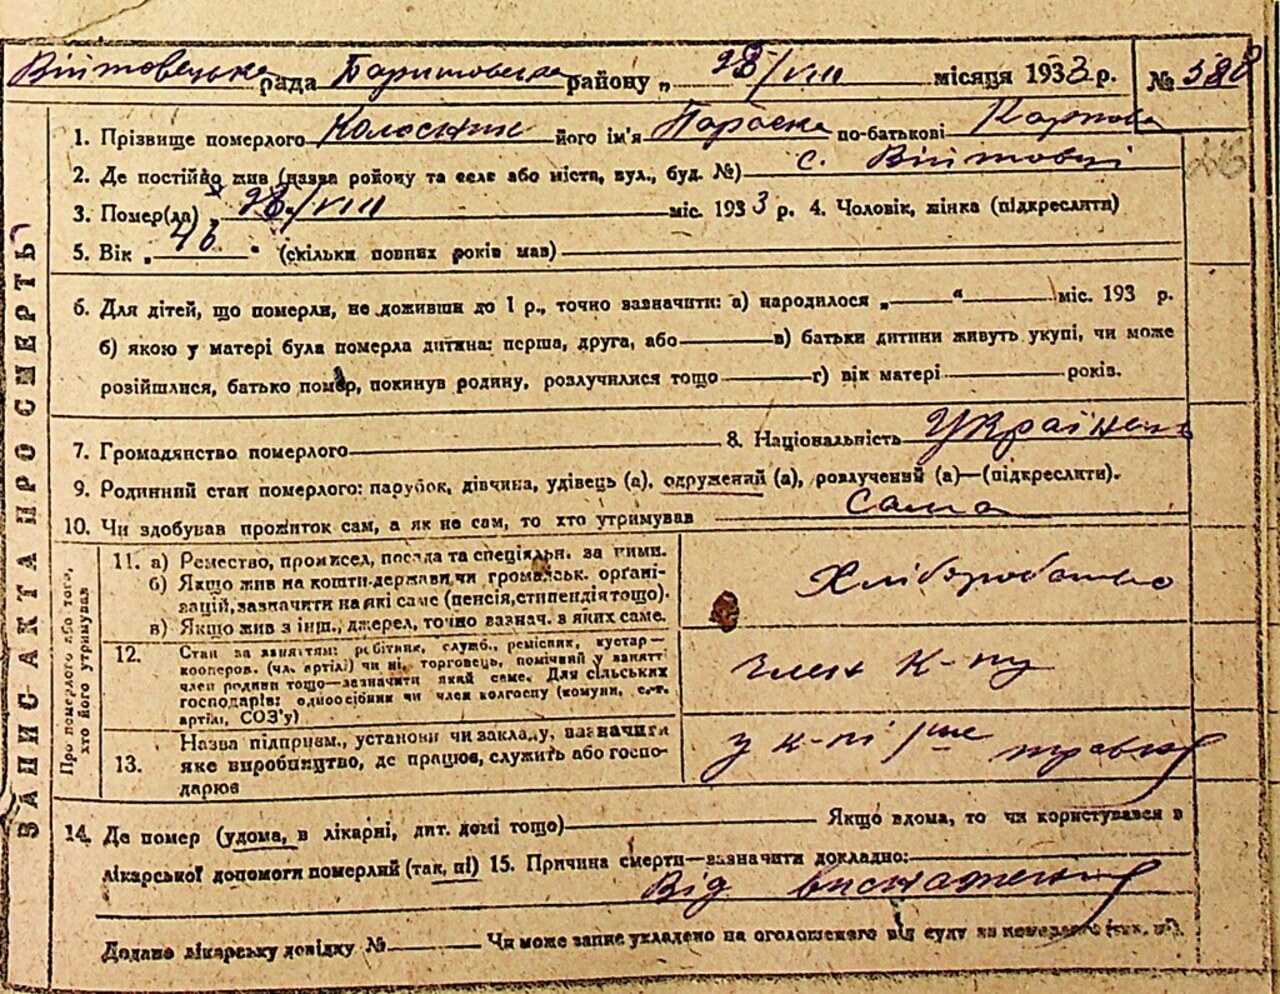 Війтовецька рада Баришевськ району „ 28/VIII місяця 1933 р. № 388
ЗАПИС АКТА ПРО СМЕРТЬ
1. Прізвище померлого Колосник його ім'я Параска по-батькові Карпова
2. Де постійно жив (назва ройону та село або міста, вул., буд. №) с. Війтовці
3. Помер(ла) „ 28/VIII міс. 1933 р. 4. Чоловік, жінка (підкреслити)
5. Вік „ 46 " (скільки повних років мав)
6. Для дітей, що померли, не доживши до 1 р., точно вазначити: а) народилося „ " міс. 193 р.
б) якою у матері була померла дитина: перша, друга, або в) батьки дитини живуть укупі, чи може
розійшлися, батько помер, покинув родину, розлучилися тощо г) вік матері років.
7. Громадянство померлого 8. Національність Українець
9. Родинний стан померлого: парубок, дівчина, удівець (а), одружений (а), розлучений (а)—(підкреслити).
10. Чи здобував прожиток сам, а як не сам, то хто утримував сама
Про померлого або того,
хто його утримував
11. а) Ремество, промисел, посада та спеціяльн. за ними.
б) Якщо жив на кошти держави чи громадськ. орґані-
зацій, зазначити на які саме (пенсія, стипендія тощо).
в) Якщо жив з інш., джерел, точно вазнач. в яких саме.
Хліборобство
12. Стан за заняттям: робітник, служб., ремісник, кустар—
кооперов. (чл. артілі) чи ні, торговець, помічний у занятті
член родини тощо—зазначити який саме. Для сільських
господарів: одноосібник чи член колгоспу (комуни, с.-г.
артілі, СОЗ'у)
член к-пу
13. Назва підприєм., установи чи закладу, вазначити
яке виробництво, де працює, служить або госпо-
дарює
у к-пі 1ше травня
14. Де помер (удома, в лікарні, дит. домі тощо) Якщо вдома, то чи користувався в
лікарської допомоги померлий (так, ні) 15. Причина смерти—вазначити докладно:
Від виснаження
Додано лікарську довідку № Чи може запис укладено на оголошеного від суду як померлого (так, ні).